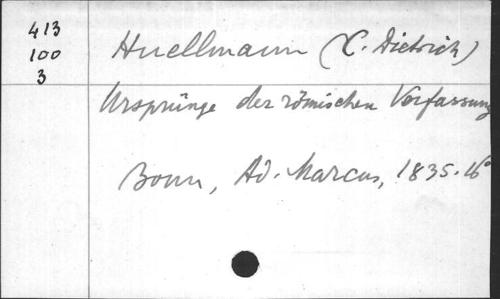 413
100
3
Huellmann (C. Dietrich)
Ursprünge der römischen Verfassung
Bonn, Ad. Marcus, 1835. 16°